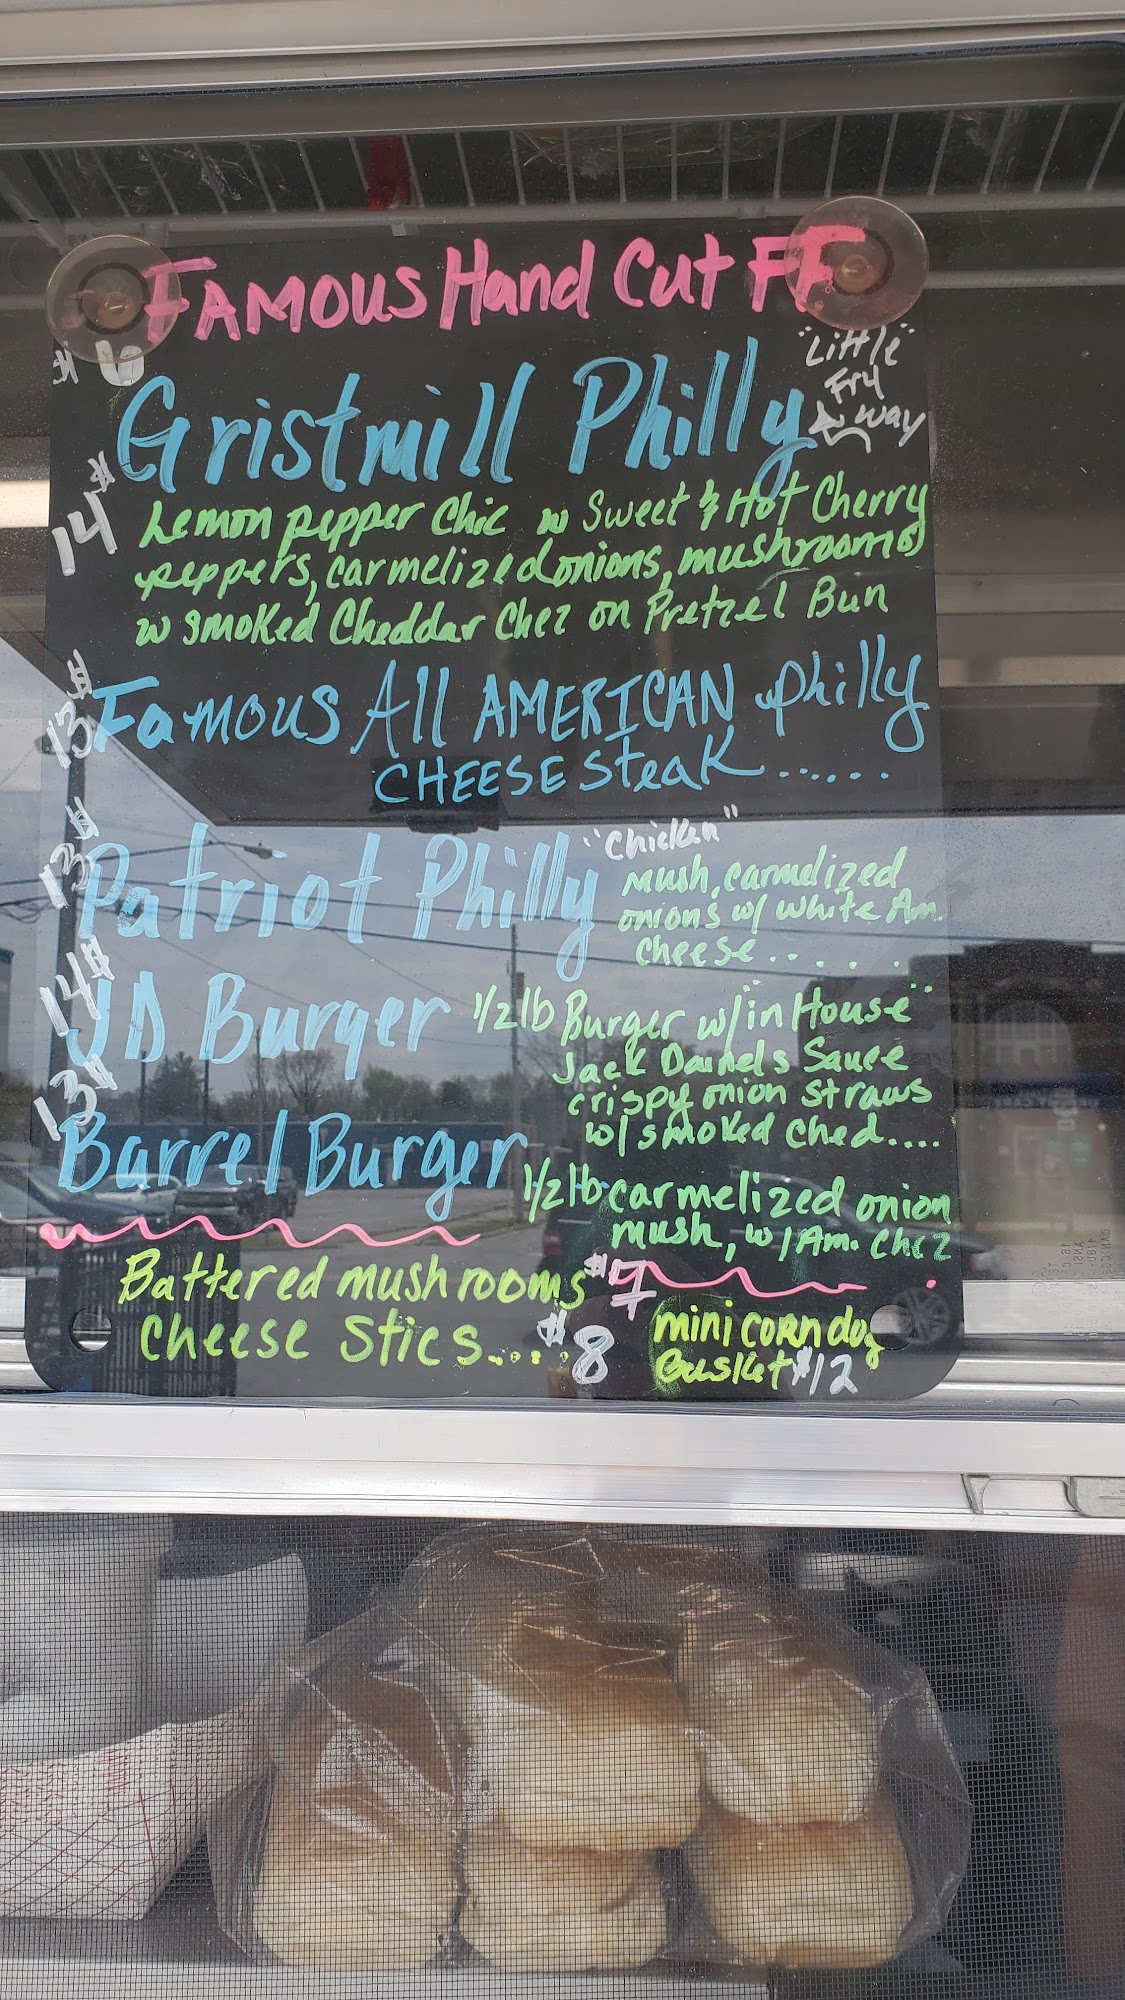 FAMOUS Hand Cut FF
"Little"
Fry
way
$6
Gristmill Philly
14$
Lemon pepper Chic w Sweet & Hot Cherry
peppers, carmelized onions, mushrooms
w smoked Cheddar Chez on Pretzel Bun
13$
Famous All AMERICAN philly
CHEESE steak......
13$
Patriot Philly "Chicken"
mush, carmelized
onions w/ white Am.
cheese.....
14$
JD Burger 1/2 lb Burger w/ "in House"
Jack Daniels Sauce
crispy onion straws
w/ smoked ched....
13$
Barrel Burger
1/2 lb carmelized onion
mush, w/ Am. chez
Battered mushrooms $7
cheese stics.... $8
mini corn dog
Basket $12